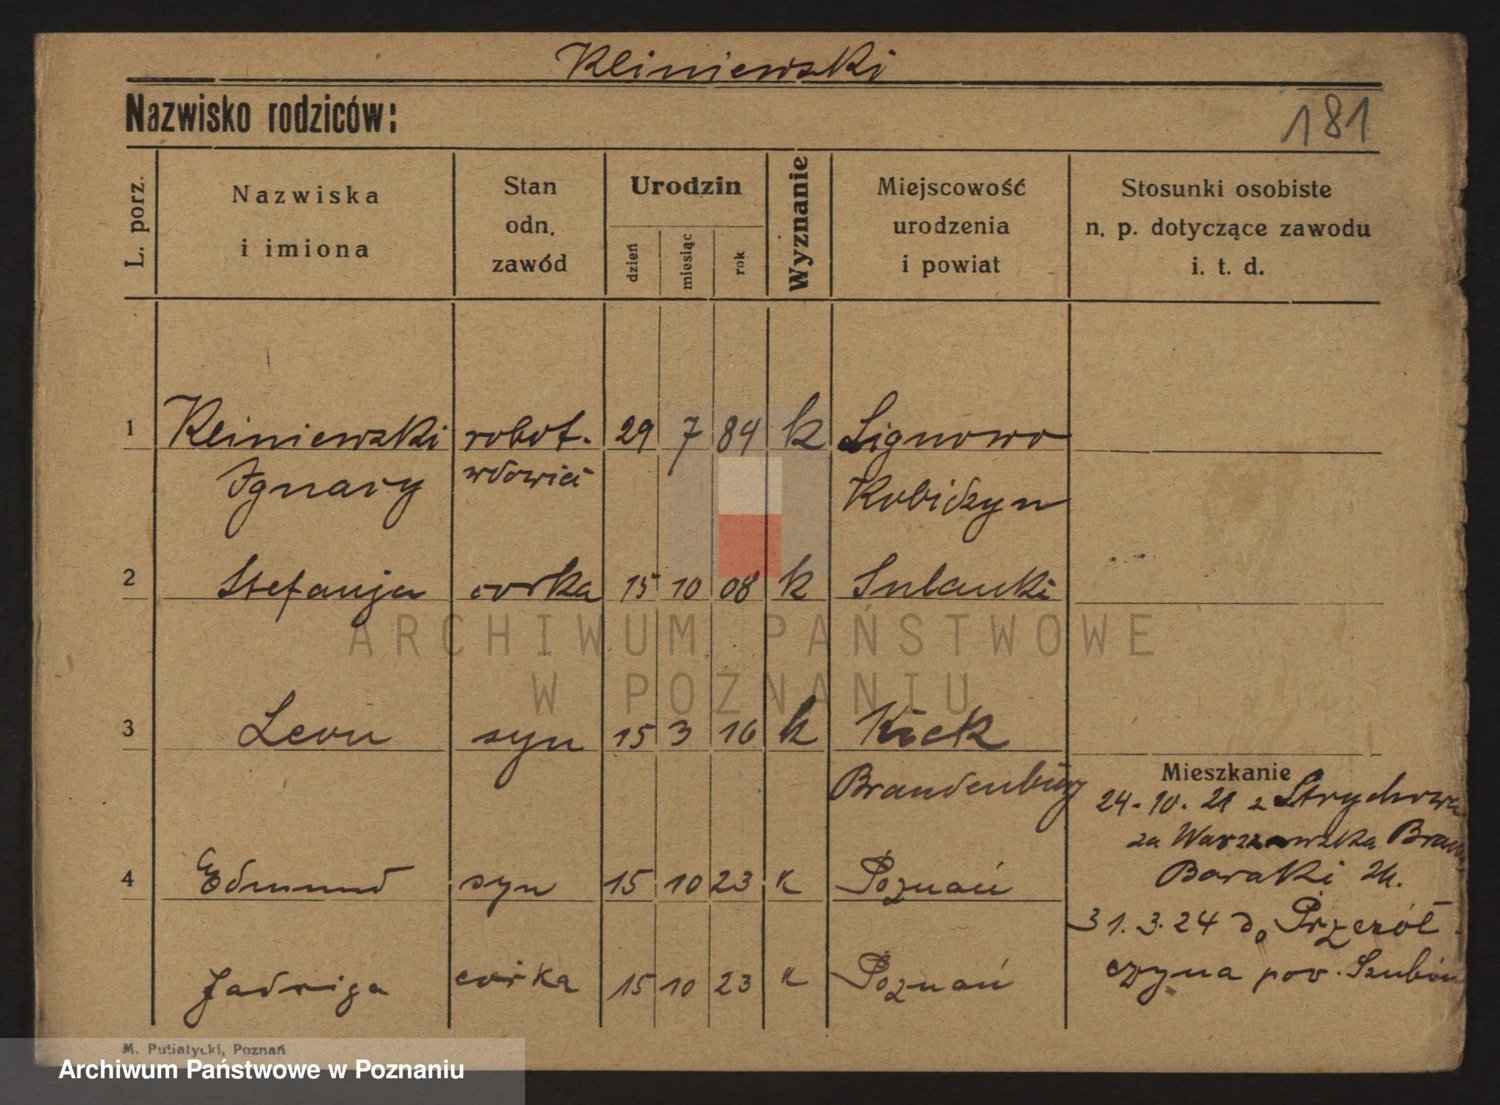 Kliniewski
Nazwisko rodziców:
181
L. porz.
Nazwiska
i imiona
Stan
odn.
zawód
Urodzin
dzień
miesiąc
rok
Wyznanie
Miejscowość
urodzenia
i powiat
Stosunki osobiste
n. p. dotyczące zawodu
i. t. d.
1 Kliniewski robot. 29 7 84 k Lignowo
Ignacy wdowiec Kobidzyn
2 Stefanja corka 15 10 08 k Sulanki
ARCHIWUM PAŃSTWOWE
W POZNANIU
3 Leon syn 15 3 16 k Kick
Brandenburg
Mieszkanie
24-10-21 z Strychowa
za Warszawska Bram
Baraki
4 Edmund syn 15 10 23 k Poznań
31.3.24 do Przerół
Jadwiga corka 15 10 23 k Poznań
czyna pow. Szubin
M. Putiatycki, Poznań
Archiwum Państwowe w Poznaniu